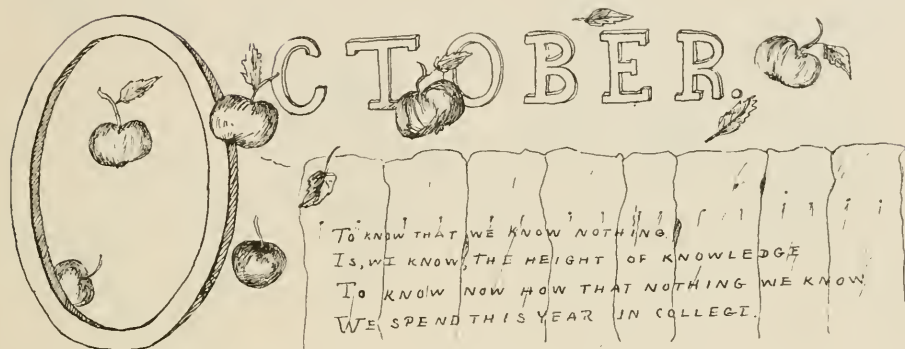 OCTOBER.
TO KNOW THAT WE KNOW NOTHING
IS, WE KNOW, THE HEIGHT OF KNOWLEDGE
TO KNOW NOW HOW THAT NOTHING WE KNOW
WE SPEND THIS YEAR IN COLLEGE.